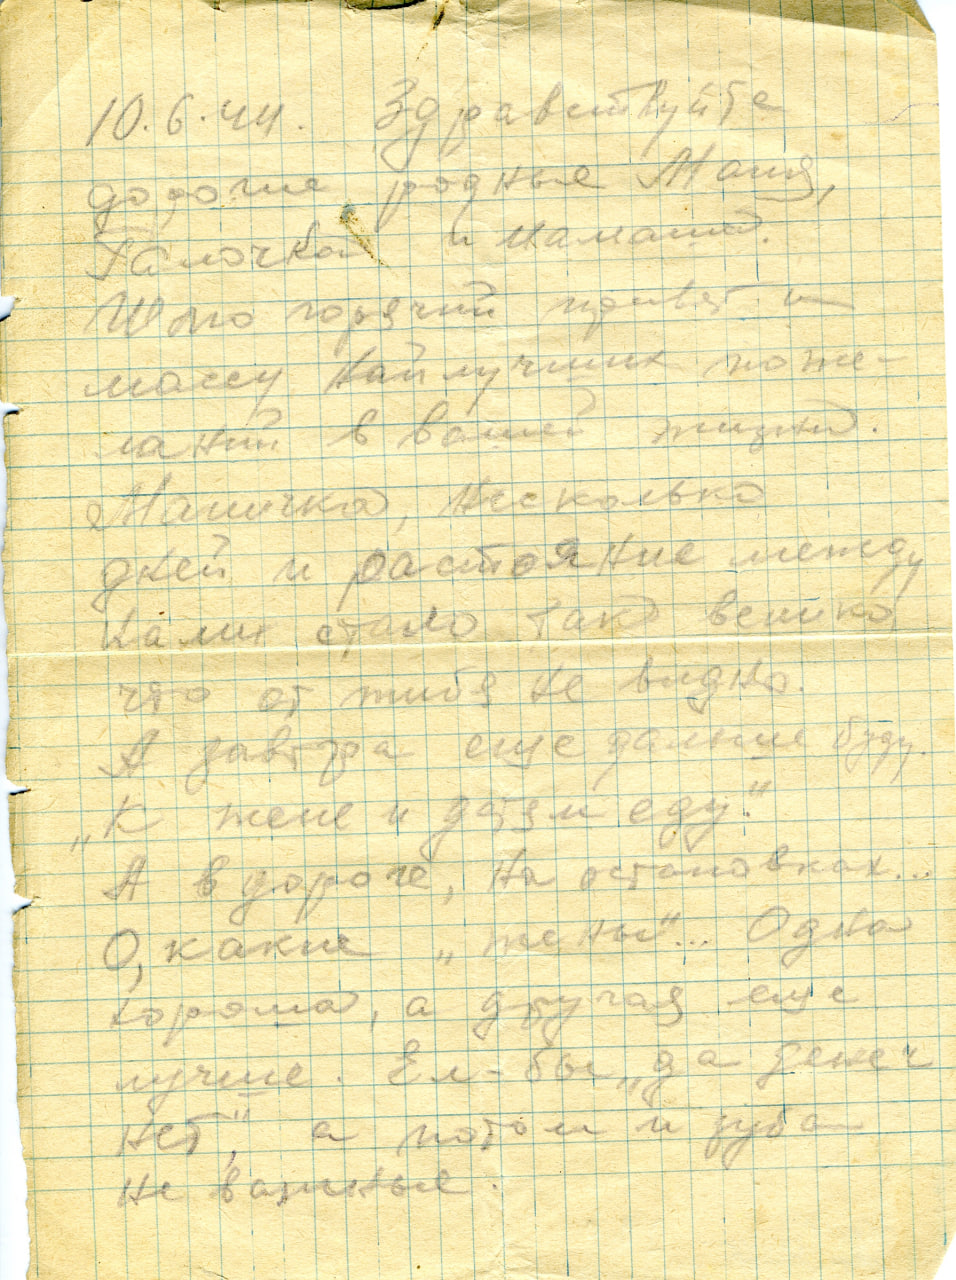 10.6.44. Здравствуйте
дорогие родные Маня,
Галочка и мамаша.
Шлю горячий привет и
массу наилучших поже-
ланий в вашей жизни.
Маничка, несколько
дней и растояние между
нами стало так велико
что от тибя не видно.
А завтра еще дальше буду.
„К жене и детям еду."
А в дороге, на остановках...
О, какие „жены"... Одна
хороша, а другая еще
лучше. Ел-бы „да денег
нет", а потом и зубы
не важные.